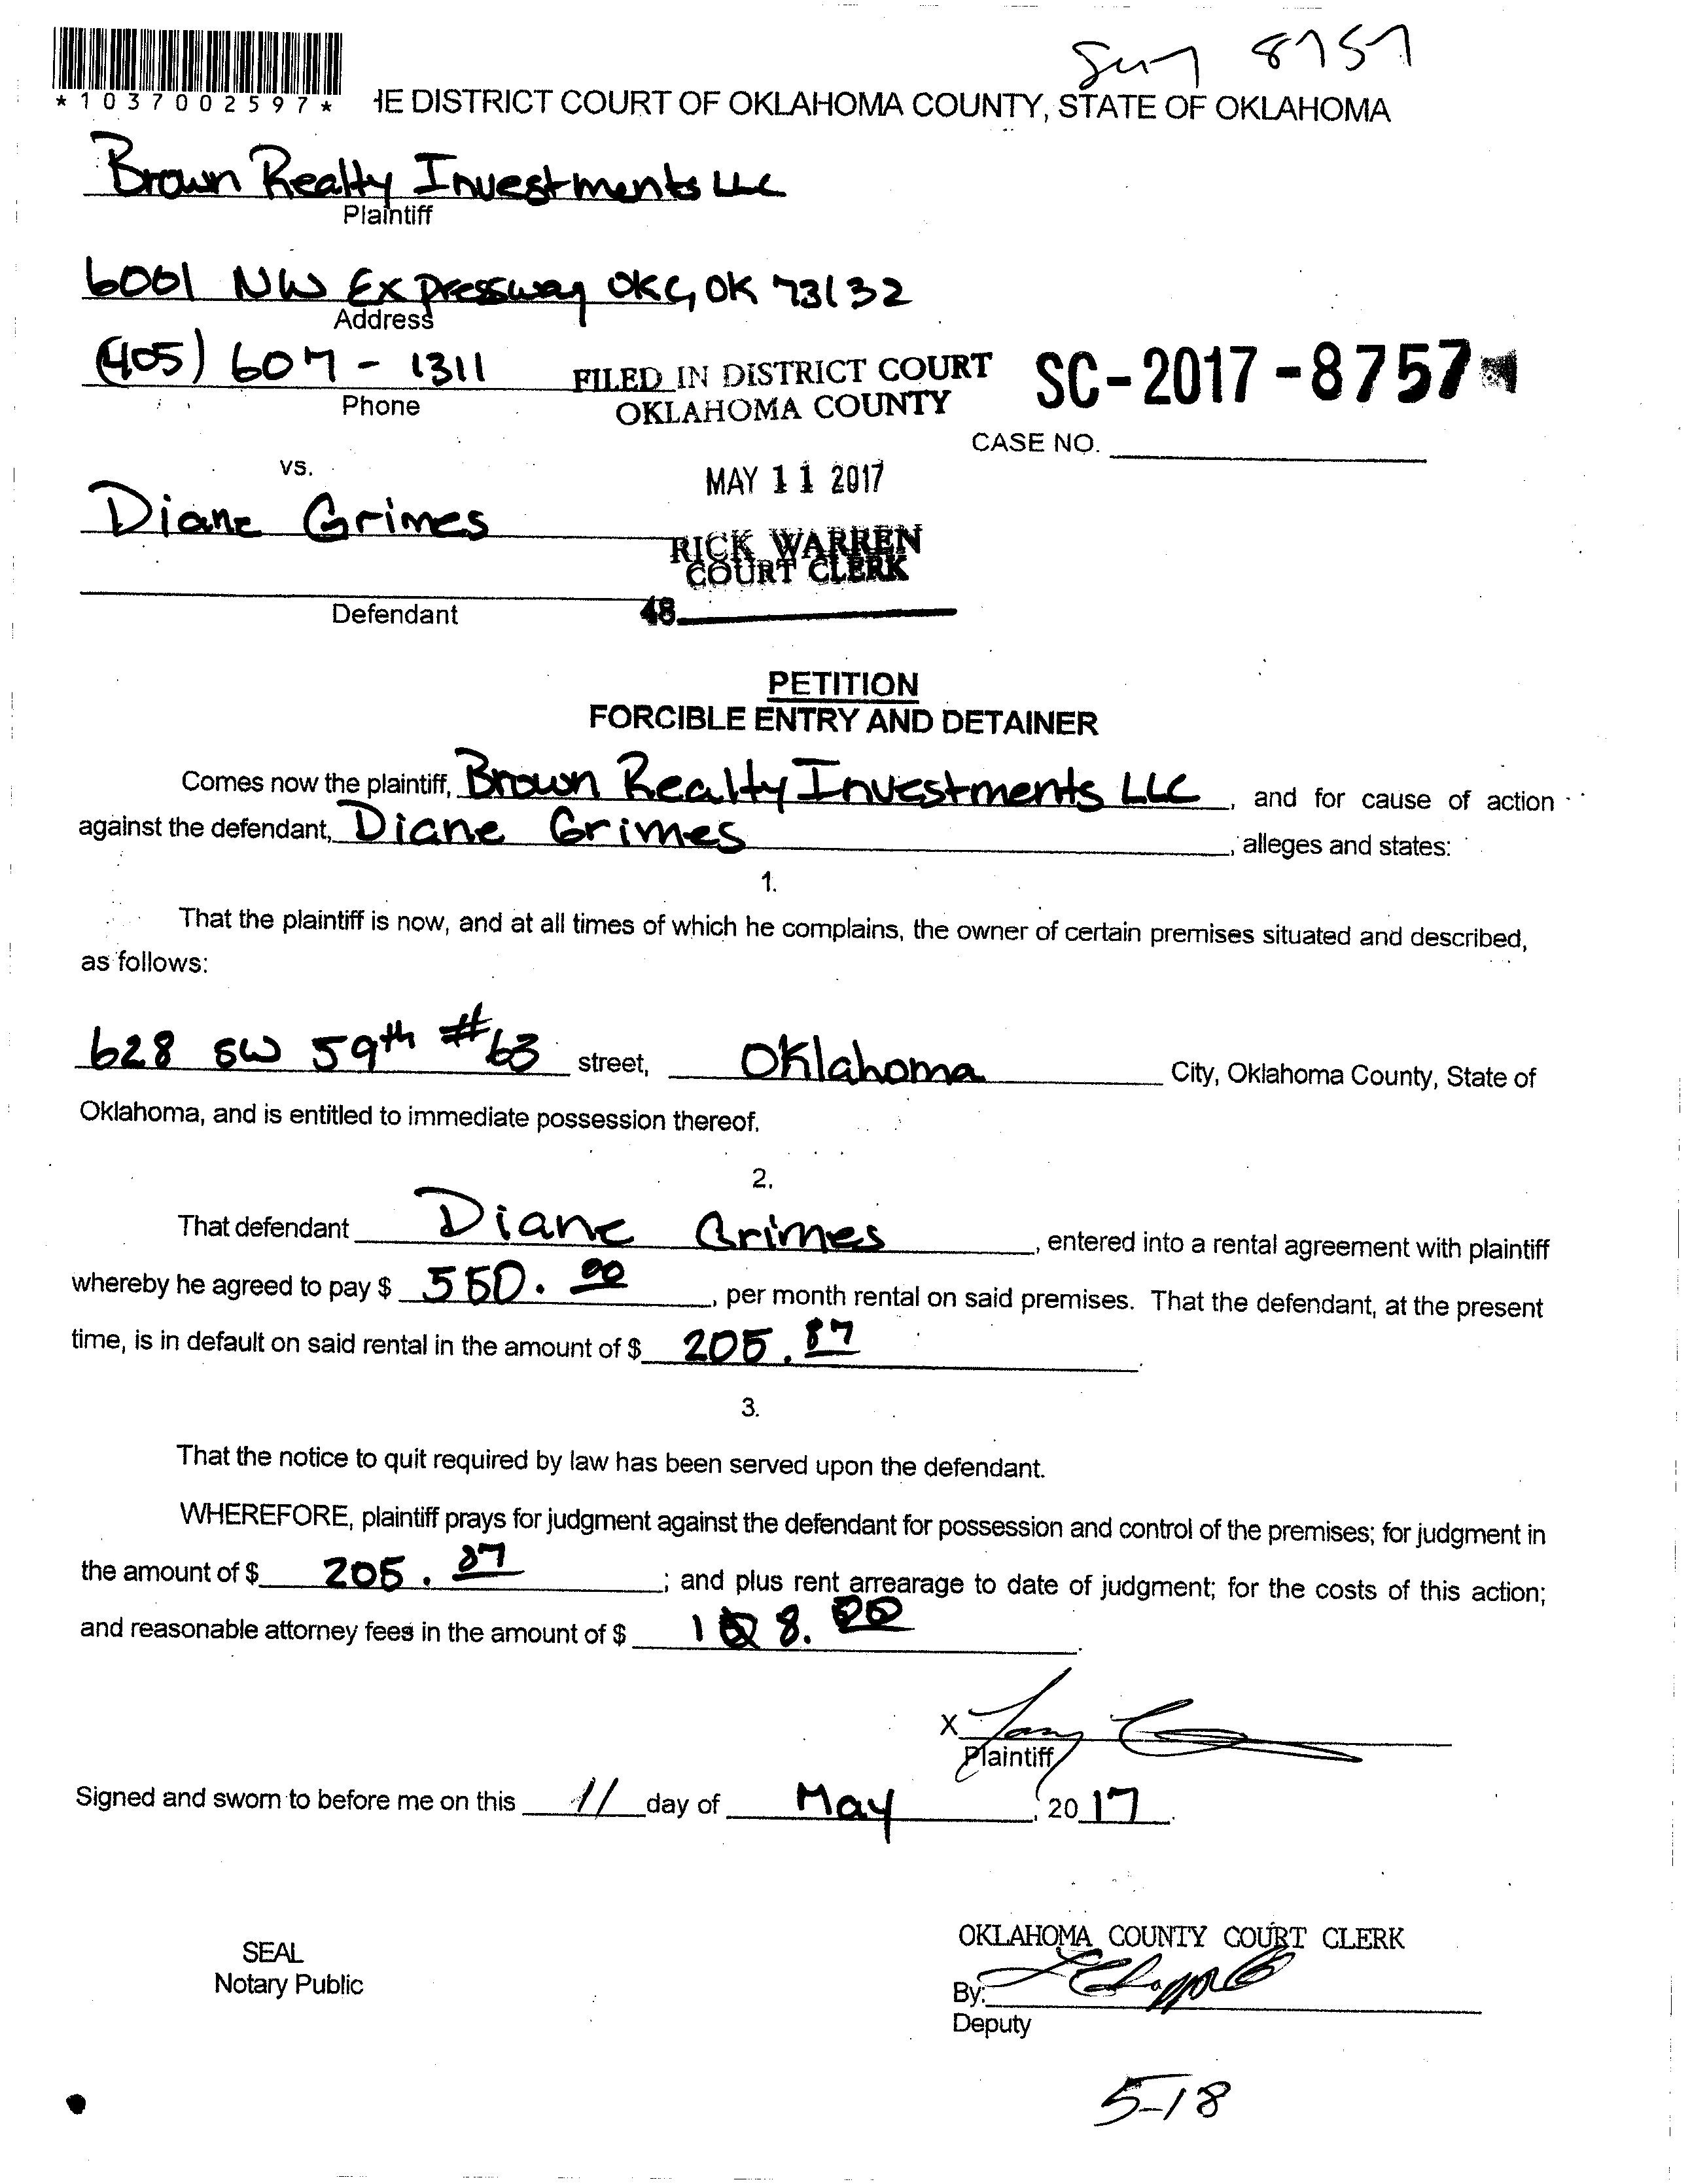 8757
*1037002597*
HE DISTRICT COURT OF OKLAHOMA COUNTY, STATE OF OKLAHOMA
Brown Realty Investments LLC
Plaintiff
6001 NW Expressway OKC, OK 73132
Address
(405) 607-1311
Phone
FILED IN DISTRICT COURT
OKLAHOMA COUNTY
SC-2017-8757
CASE NO.
vs.
MAY 11 2017
Diane Grimes
RICK WARREN
COURT CLERK
Defendant
48
PETITION
FORCIBLE ENTRY AND DETAINER
Comes now the plaintiff, Brown Realty Investments LLC, and for cause of action
against the defendant, Diane Grimes, alleges and states:
1.
That the plaintiff is now, and at all times of which he complains, the owner of certain premises situated and described,
as follows:
628 SW 59th #63 street, Oklahoma City, Oklahoma County, State of
Oklahoma, and is entitled to immediate possession thereof.
2.
That defendant Diane Grimes, entered into a rental agreement with plaintiff
whereby he agreed to pay $ 550.00, per month rental on said premises. That the defendant, at the present
time, is in default on said rental in the amount of $ 205.87.
3.
That the notice to quit required by law has been served upon the defendant.
WHEREFORE, plaintiff prays for judgment against the defendant for possession and control of the premises; for judgment in
the amount of $ 205.87; and plus rent arrearage to date of judgment; for the costs of this action;
and reasonable attorney fees in the amount of $
X
Plaintiff
Signed and sworn to before me on this 11 day of May, 2017.
SEAL
Notary Public
OKLAHOMA COUNTY COURT CLERK
By:
Deputy
5-18